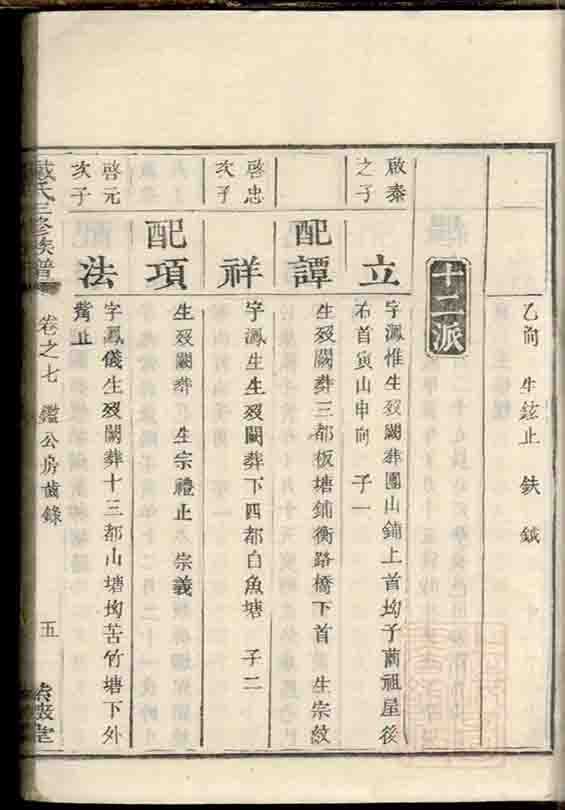 乙向 生鉉止 鈇 鉞
十二派
啟泰之子
立
字鳳惟生歿闕葬團山鋪上首坳子蔄祖屋後右首寅山申向 子一
配譚
生歿闕葬三都板塘鋪衡路橋下首 生宗紋
啓忠次子
祥
字鳳生生歿闕葬下四都白魚塘 子二
配項
生歿闕葬 生宗禮止 宗義
啓元次子
法
字鳳儀生歿闕葬十三都山塘坳苦竹塘下外觜止
戴氏三修族譜 卷之七 鑑公房齒錄 五